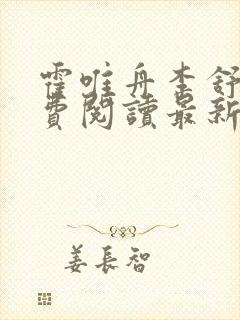 霍唯舟李舒
費閱讀最新
姜長智